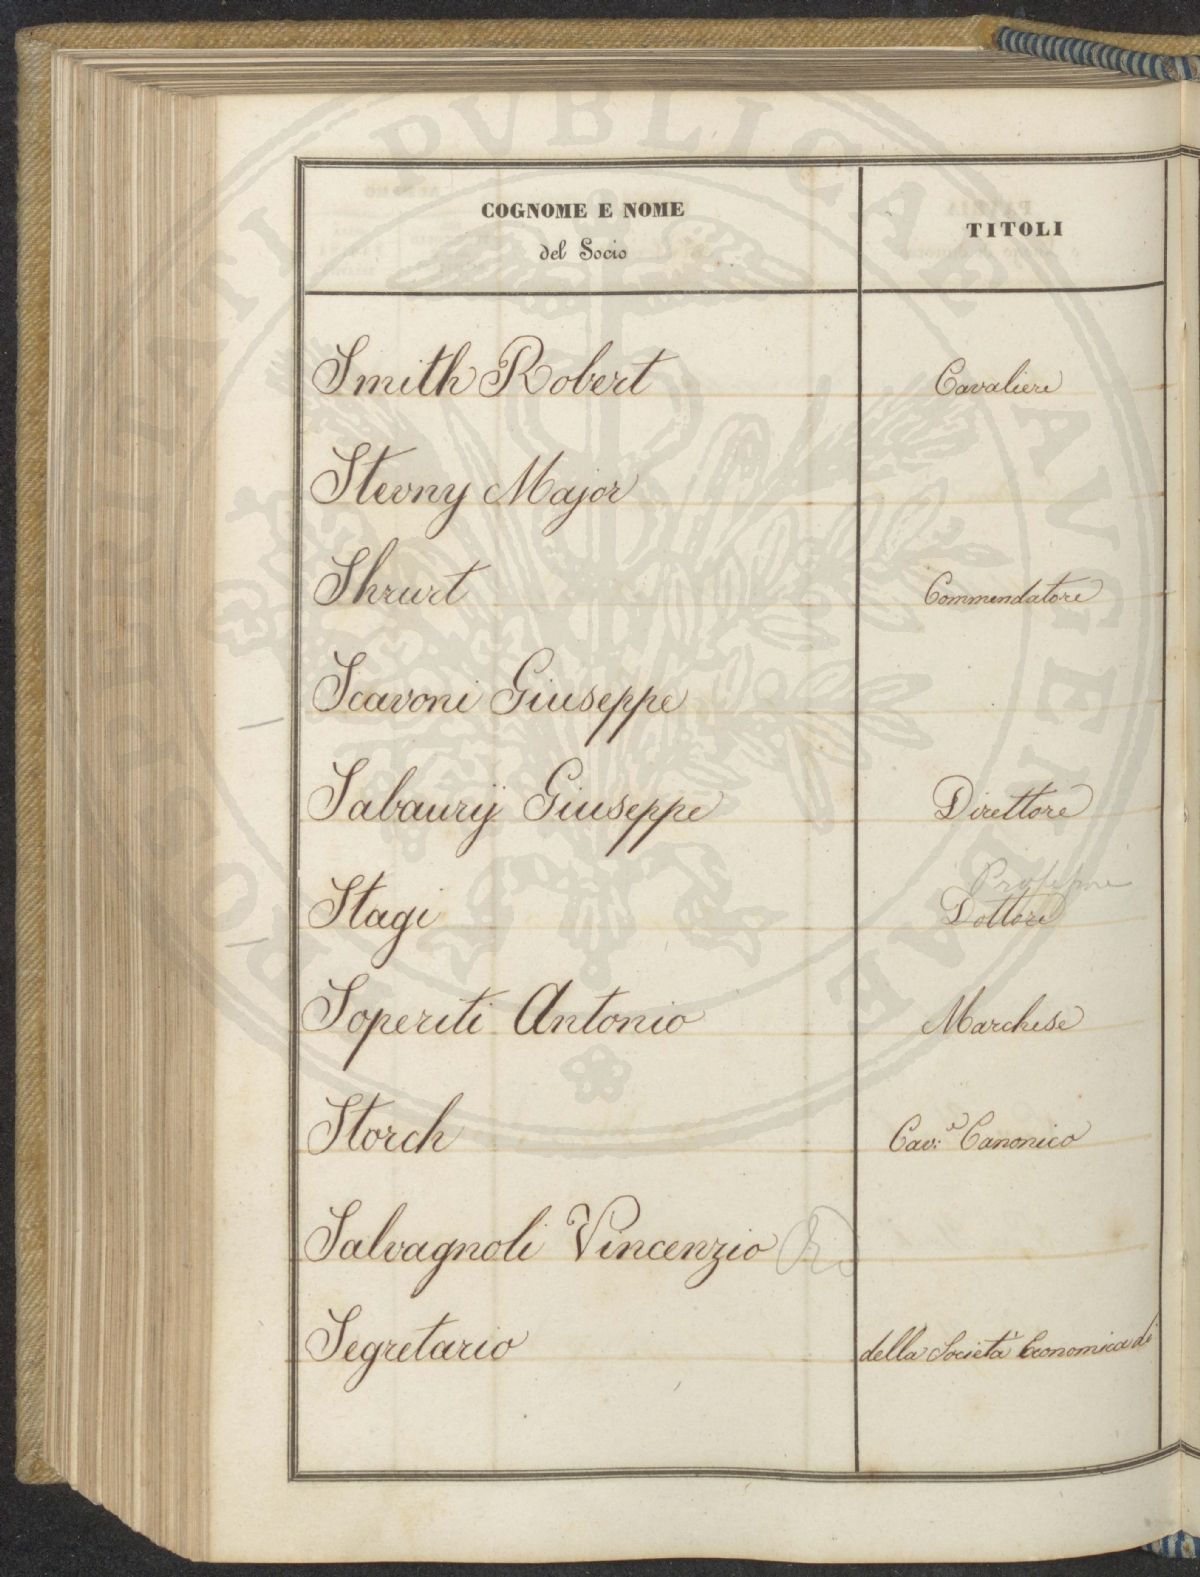 COGNOME E NOME
del Socio
TITOLI
Smith Robert Cavaliere
Stevny Major
Shrurt Commendatore
Scavoni Giuseppe
Sabaurij Giuseppe Direttore
Professore
Stagi Dottore
Soperiti Antonio Marchese
Storch Cav:e Canonico
Salvagnoli Vincenzio
Segretario della Società Economica di
PVBLICAE AVGENDAE